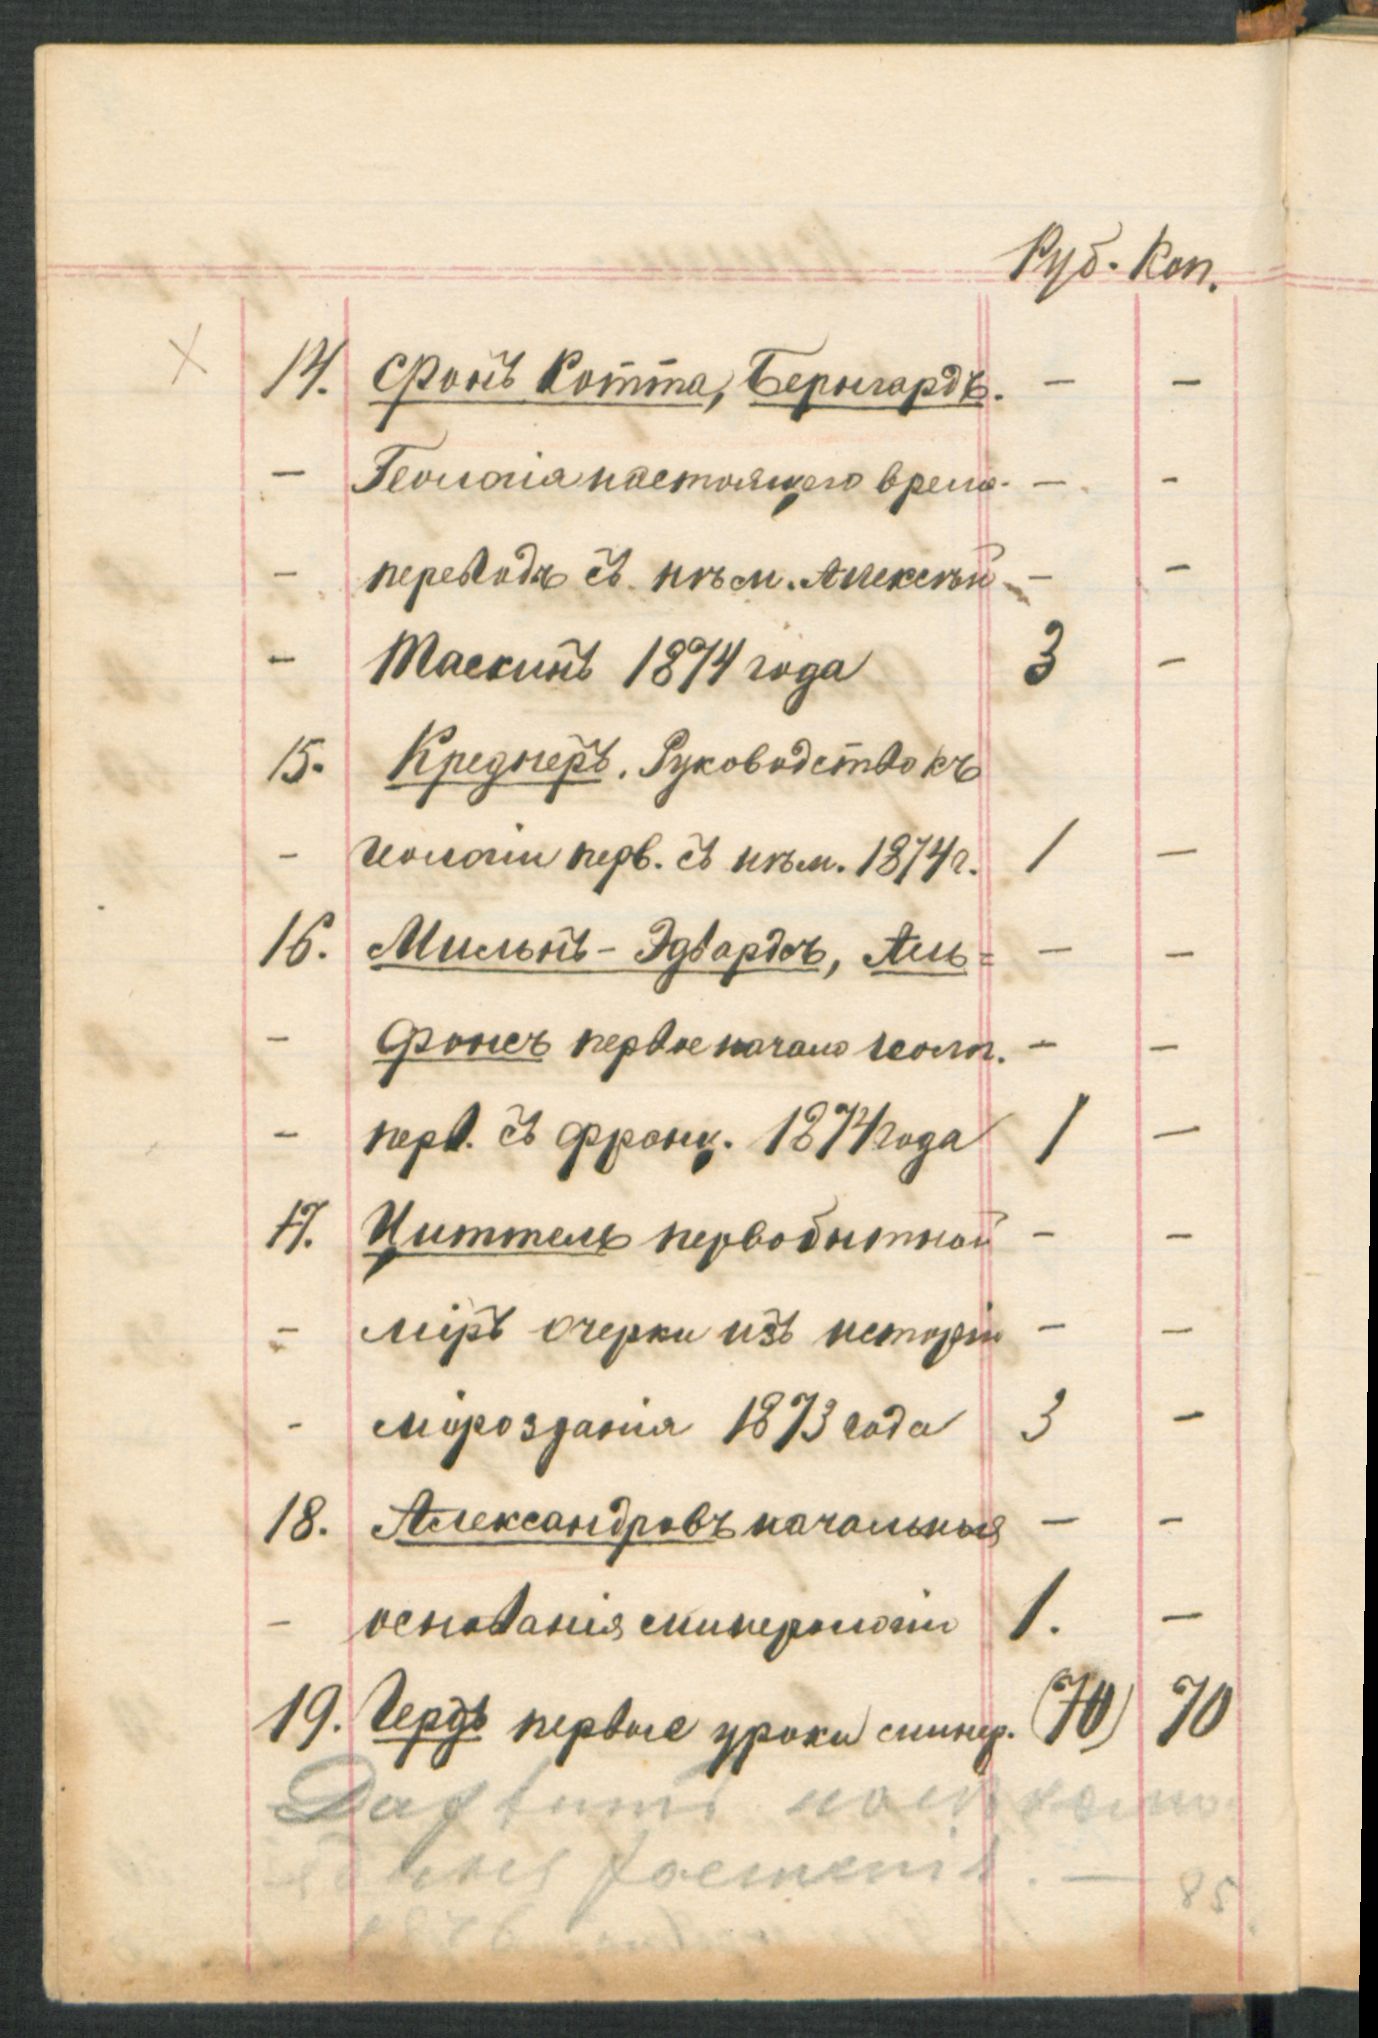 Руб. Коп.
14. Фонъ Котта, Бернгардъ. — —
— Геологія настоящаго врем. — —
— переводъ съ нѣм. Алексѣй — —
— Таскинъ 1874 года 3 —
15. Креднеръ. Руководство къ
— геологіи перв. съ нѣм. 1874 г. 1 —
16. Мильнъ-Эдвардсъ, Аль= — —
— фонсъ первое начало геолог. — —
— перв. съ франц. 1874 года 1 —
17. Циттель первобытной — —
— міръ очерки изъ исторіи — —
— мірозданія 1873 года 3 —
18. Александровъ начальныя — —
— основанія минерологіи 1. —
19. Гердъ первые уроки минер. (70) 70
Дарвинъ насѣкомо-
ядныя растенія. — 85